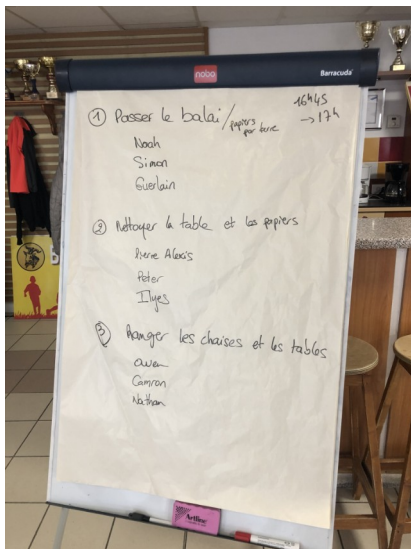 nobo
Barracuda
16h45
→ 17h
① Passer le balai / papiers par terre
Noah
Simon
Guerlain
② Nettoyer la table et les papiers
Pierre Alexis
Peter
Ilyes
③ Ranger les chaises et les tables
Owen
Camron
Nathan
Artline